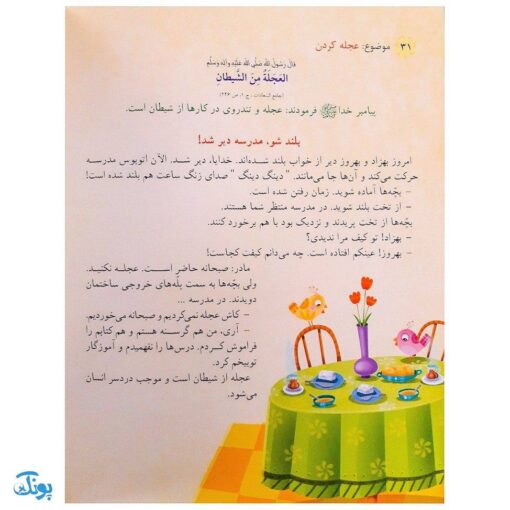 ۳۱ موضوع: عجله کردن
قالَ رَسُولُ اللّه صَلَّی اللّه عَلَیْهِ وَآلِهِ وَسَلَّم
اَلعَجَلَةُ مِنَ الشَّیطانِ
(جامع السّعادات، ج ۱، ص ۲۳۶)
پیامبر خدا ﷺ فرمودند: عجله و تندروی در کارها از شیطان است.
بلند شو، مدرسه دیر شد!
امروز بهزاد و بهروز دیر از خواب بلند شده‌اند. خدایا، دیر شد. الآن اتوبوس مدرسه
حرکت می‌کند و آن‌ها جا می‌مانند. " دینگ دینگ " صدای زنگ ساعت هم بلند شده است!
– بچّه‌ها آماده شوید. زمان رفتن شده است.
– از تخت بلند شوید. در مدرسه منتظر شما هستند.
بچّه‌ها از تخت پریدند و نزدیک بود با هم برخورد کنند.
– بهزاد! تو کیف مرا ندیدی؟
– بهروز! عینکم افتاده است. چه می‌دانم کیفت کجاست!
مادر: صبحانه حاضر است. عجله نکنید.
ولی بچّه‌ها به سمت پلّه‌های خروجی ساختمان
دویدند. در مدرسه ...
– کاش عجله نمی‌کردیم و صبحانه می‌خوردیم.
– آری، من هم گرسنه هستم و هم کتابم را
فراموش کردم. درس‌ها را نفهمیدم و آموزگار
توبیخم کرد.
عجله از شیطان است و موجب دردسر انسان
می‌شود.
پونک